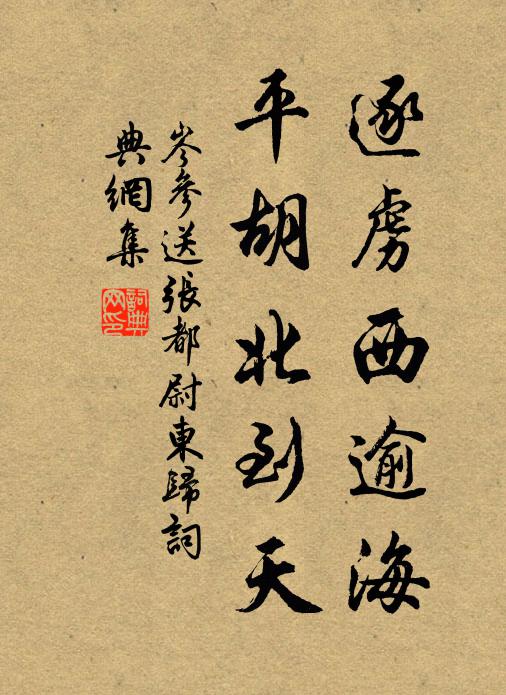 逐虜西逾海
平胡北到天
岑參送張都尉東歸詞
典網集
詞典網印